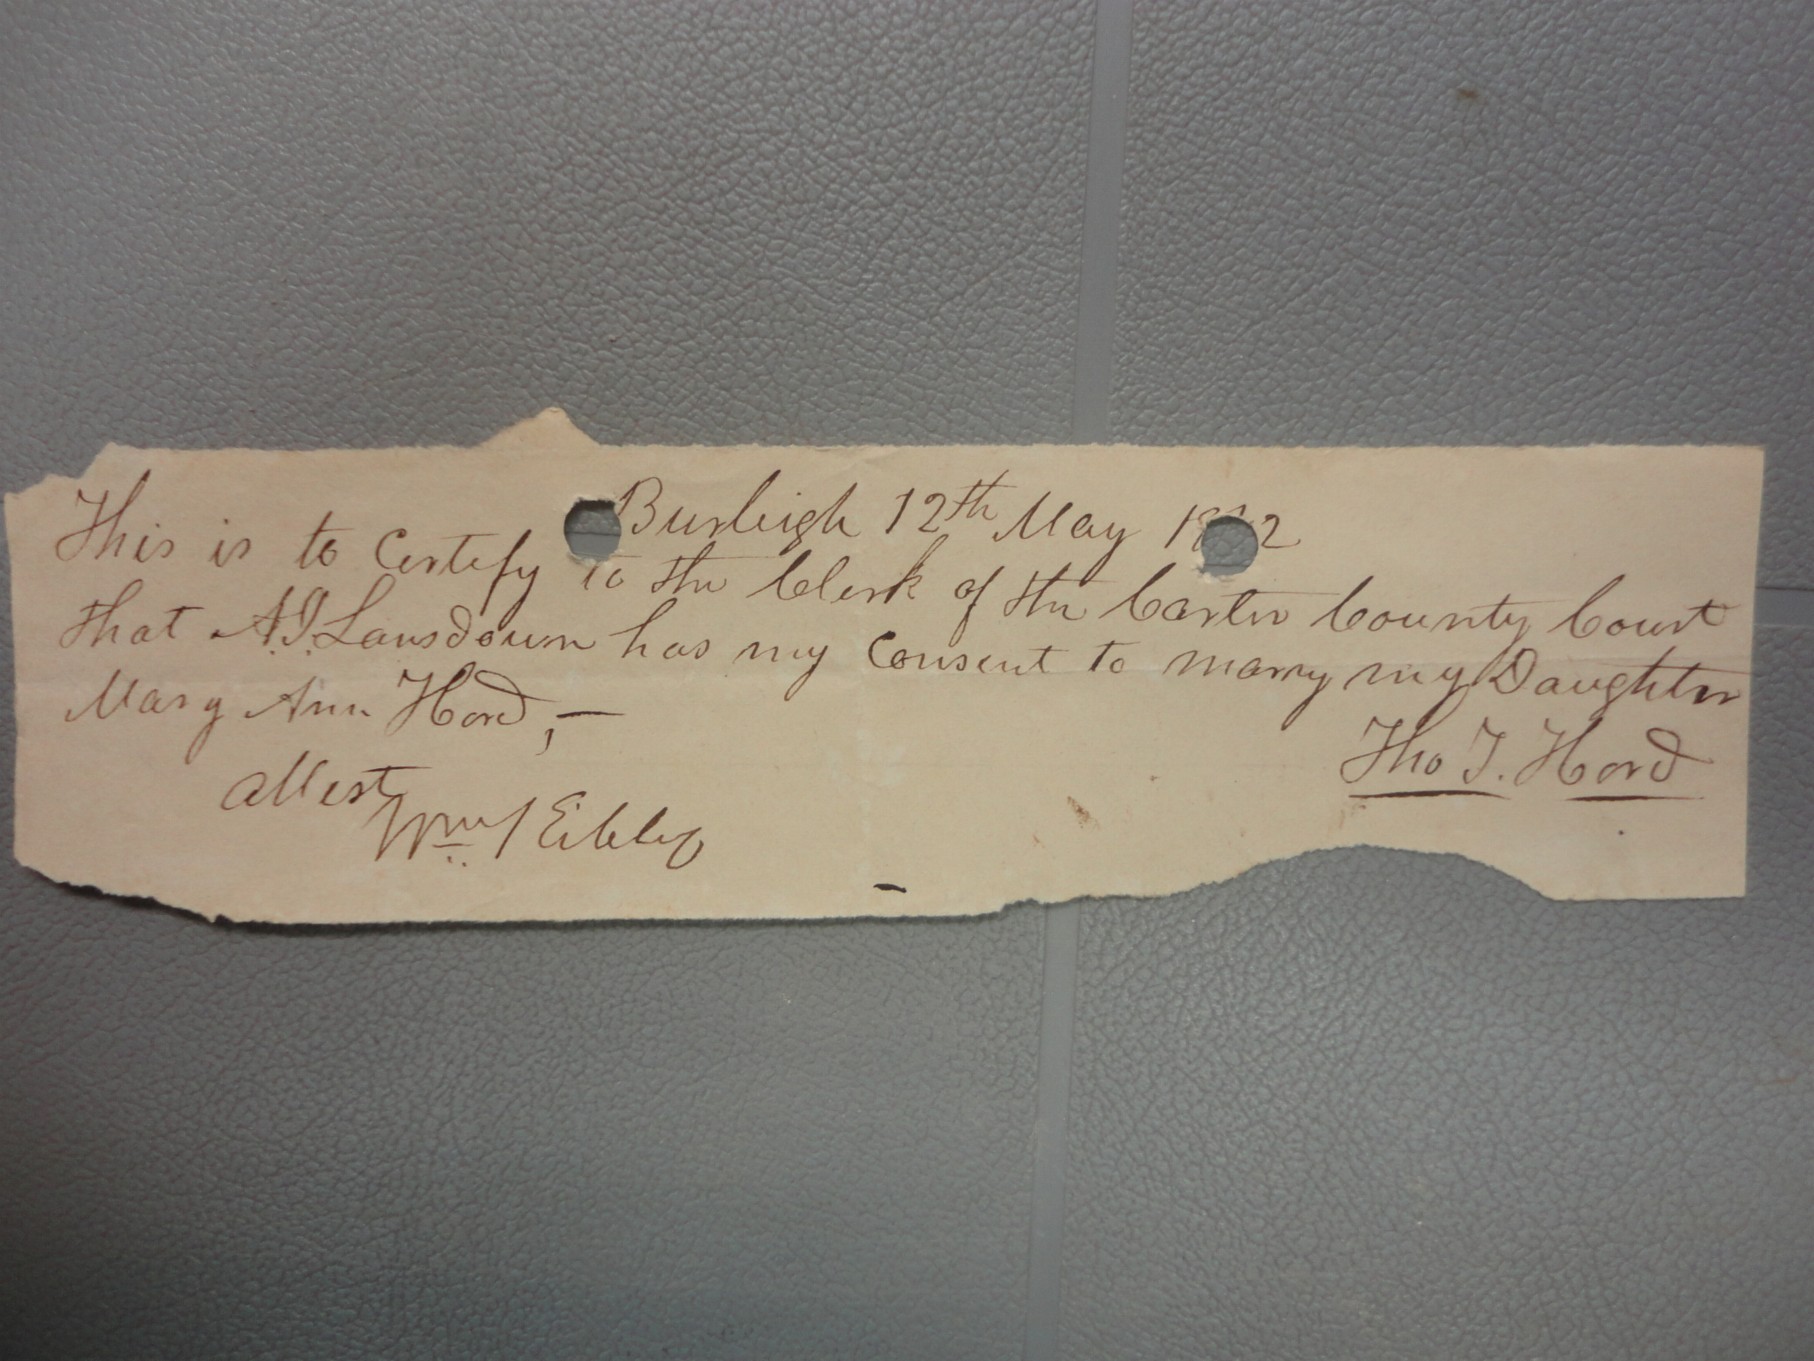 Burleigh 12th May 18 2
This is to Certify to the Clerk of the Carter County Court
that A. J. Lansdown has my Consent to marry my Daughter
Mary Ann Hord, —
Tho T. Hord
Attest
Wm